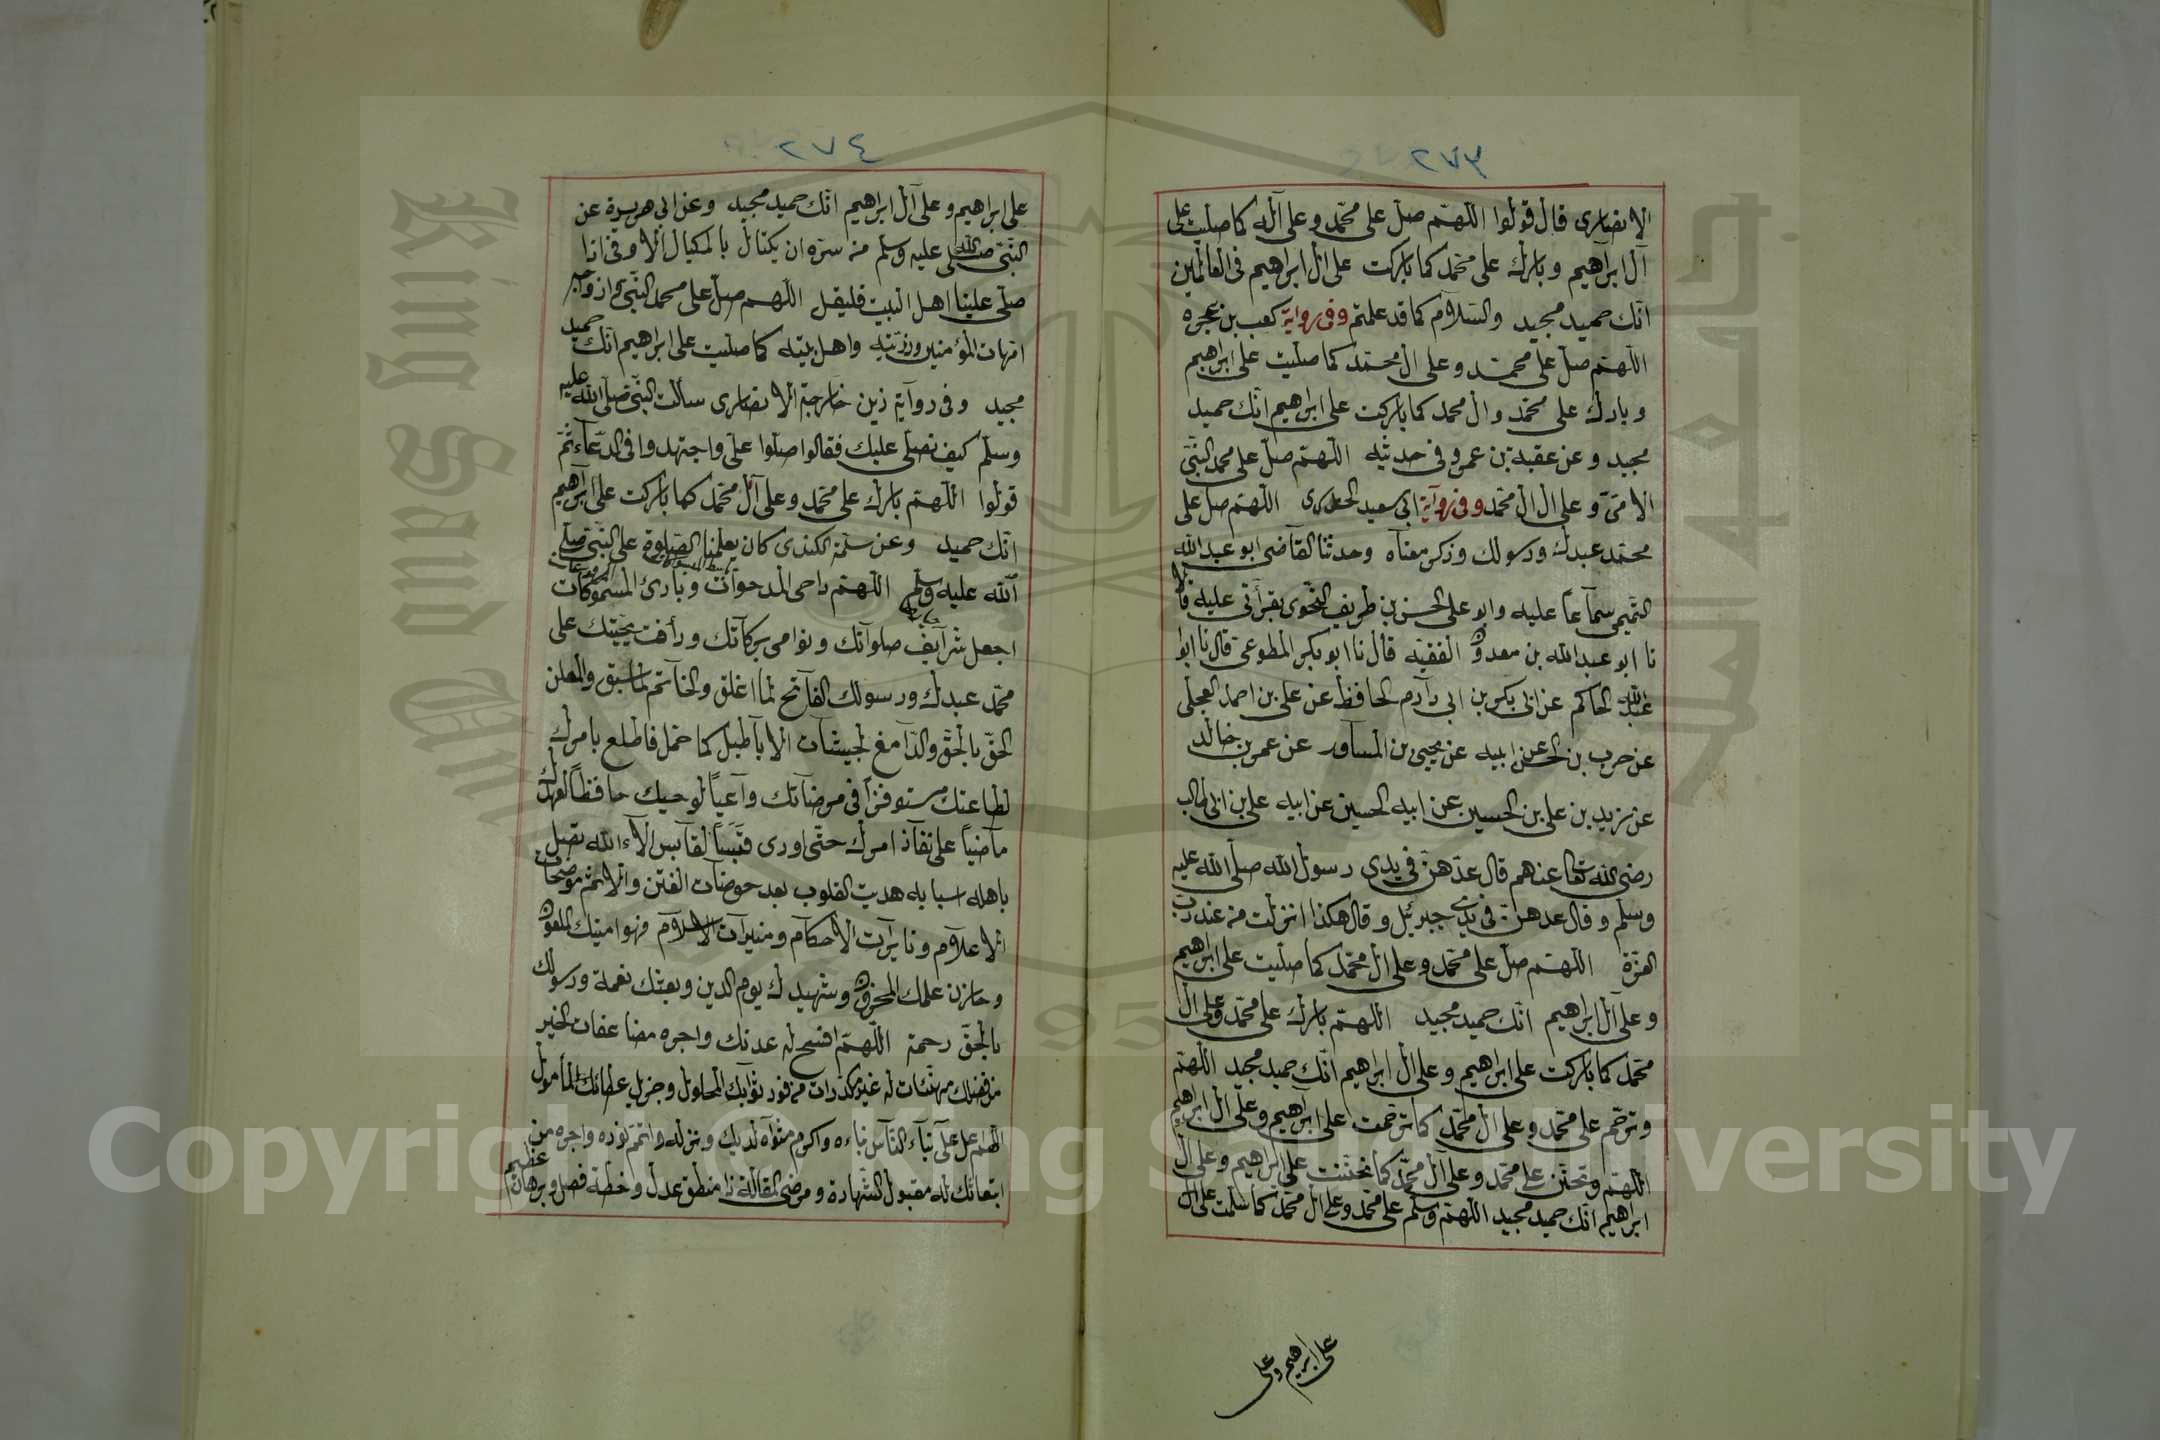 ٢٧٣
الانصارى قال قولوا اللهم صل على محمد وعلى آله كما صليت على
آل ابراهيم وبارك على محمد كما باركت على ال ابراهيم فى العالمين
انك حميد مجيد والسلام كما قد علمتم وفى رواية كعب بن عجره
اللهم صل على محمد وعلى ال محمد كما صليت على ابراهيم
وبارك على محمد وال محمد كما باركت على ابراهيم انك حميد
مجيد وعن عقبه بن عمرو فى حديثه اللهم صل على محمد النبى
الامى وعلى ال محمد وفى رواية ابى سعيد الخدرى اللهم صل على
محمد عبدك ورسولك وذكر معناه وحدثنا القاضى ابو عبد الله
التميمى سماعا عليه وابو على الحسن بن طريف النحوى بقرأتى عليه قالا
نا ابو عبد الله بن سعدون الفقيه قال نا ابو بكر المطوعى قال نا ابو
عبد الله الحاكم عن ابى بكر بن ابى دارم الحافظ عن على بن احمد العجلى
عن حرب بن الحسن عن ابيه عن يحيى بن المساور عن عمر بن خالد
عن زيد بن على بن الحسين عن ابيه الحسين عن ابيه على بن ابى طالب
رضى الله تعا عنهم قال عدهن فى يدى رسول الله صلى الله عليه
وسلم وقال عدهن فى يدى جبرئيل وقال هكذا انزلت من عند رب
العزة اللهم صل على محمد وعلى ال محمد كما صليت على ابراهيم
وعلى آل ابراهيم انك حميد مجيد اللهم بارك على محمد وعلى ال
محمد كما باركت على ابراهيم وعلى ال ابراهيم انك حميد مجيد اللهم
وترحم على محمد وعلى ال محمد كما ترحمت على ابراهيم وعلى ال ابراهيم
اللهم وتحنن على محمد وعلى آل محمد كما تحننت على ابراهيم وعلى ال
ابراهيم انك حميد مجيد اللهم وسلم على محمد وعلى ال محمد كما سلمت على ال
على ابراهيم وعلى
٢٧٤
على ابراهيم وعلى آل ابراهيم انك حميد مجيد وعن ابى هريرة عن
النبى صلى الله عليه وسلم من سره ان يكتال بالمكيال الاوفى اذا
صلى علينا اهل البيت فليقل اللهم صل على محمد النبى وازواجه
امهات المؤمنين وذريته واهل بيته كما صليت على ابراهيم انك حميد
مجيد وفى رواية زين خارجة الانصارى سالت النبى صلى الله عليه
وسلم كيف نصلى عليك فقالوا صلوا على واجتهدوا فى الدعاء ثم
قولوا اللهم بارك على محمد وعلى آل محمد كما باركت على ابراهيم
انك حميد وعن سلمة الكندى كان يعلمنا الصلوة على النبى صلى
الله عليه وسلم اللهم داحى المدحوات وبارئ المسموكات
اجعل شرايف صلواتك ونوامى بركاتك ورأفت تحيتك على
محمد عبدك ورسولك الفاتح لما اغلق والخاتم لما سبق والمعلن
الحق بالحق والدامغ لجيشات الاباطيل كما حمل فاطلع بامرك
لطاعتك مستوفزا فى مرضاتك واعيا لوحيك حافظا لعهدك
ماضيا على نفاذ امرك حتى اورى قبسا لقابس الآء الله تصل
باهله اسبابه هديت القلوب بعد خوضات الفتن والاثم موضحات
الاعلام ونايرات الاحكام ومنيرات الاسلام فهو امينك المامون
وخازن علمك المخزون وشهيدك يوم الدين وبعيثك نعمة ورسولك
بالحق رحمة اللهم افسح له عدنك واجره مضاعفات الخير
من فضلك مهنئات له غير مكدرات من فوز ثوابك المحلول وجزيل عطائك المأمول
اللهم عل على بناء الناس بناءه واكرم مثواه لديك ونزله واتمم نوره واجره من
ابتعاثك له مقبول الشهادة ومرضى المقالة ذا منطق عدل وخطة فصل وبرهان عظيم
King Saud University
جامعة الملك سعود
Copyright © King Saud University